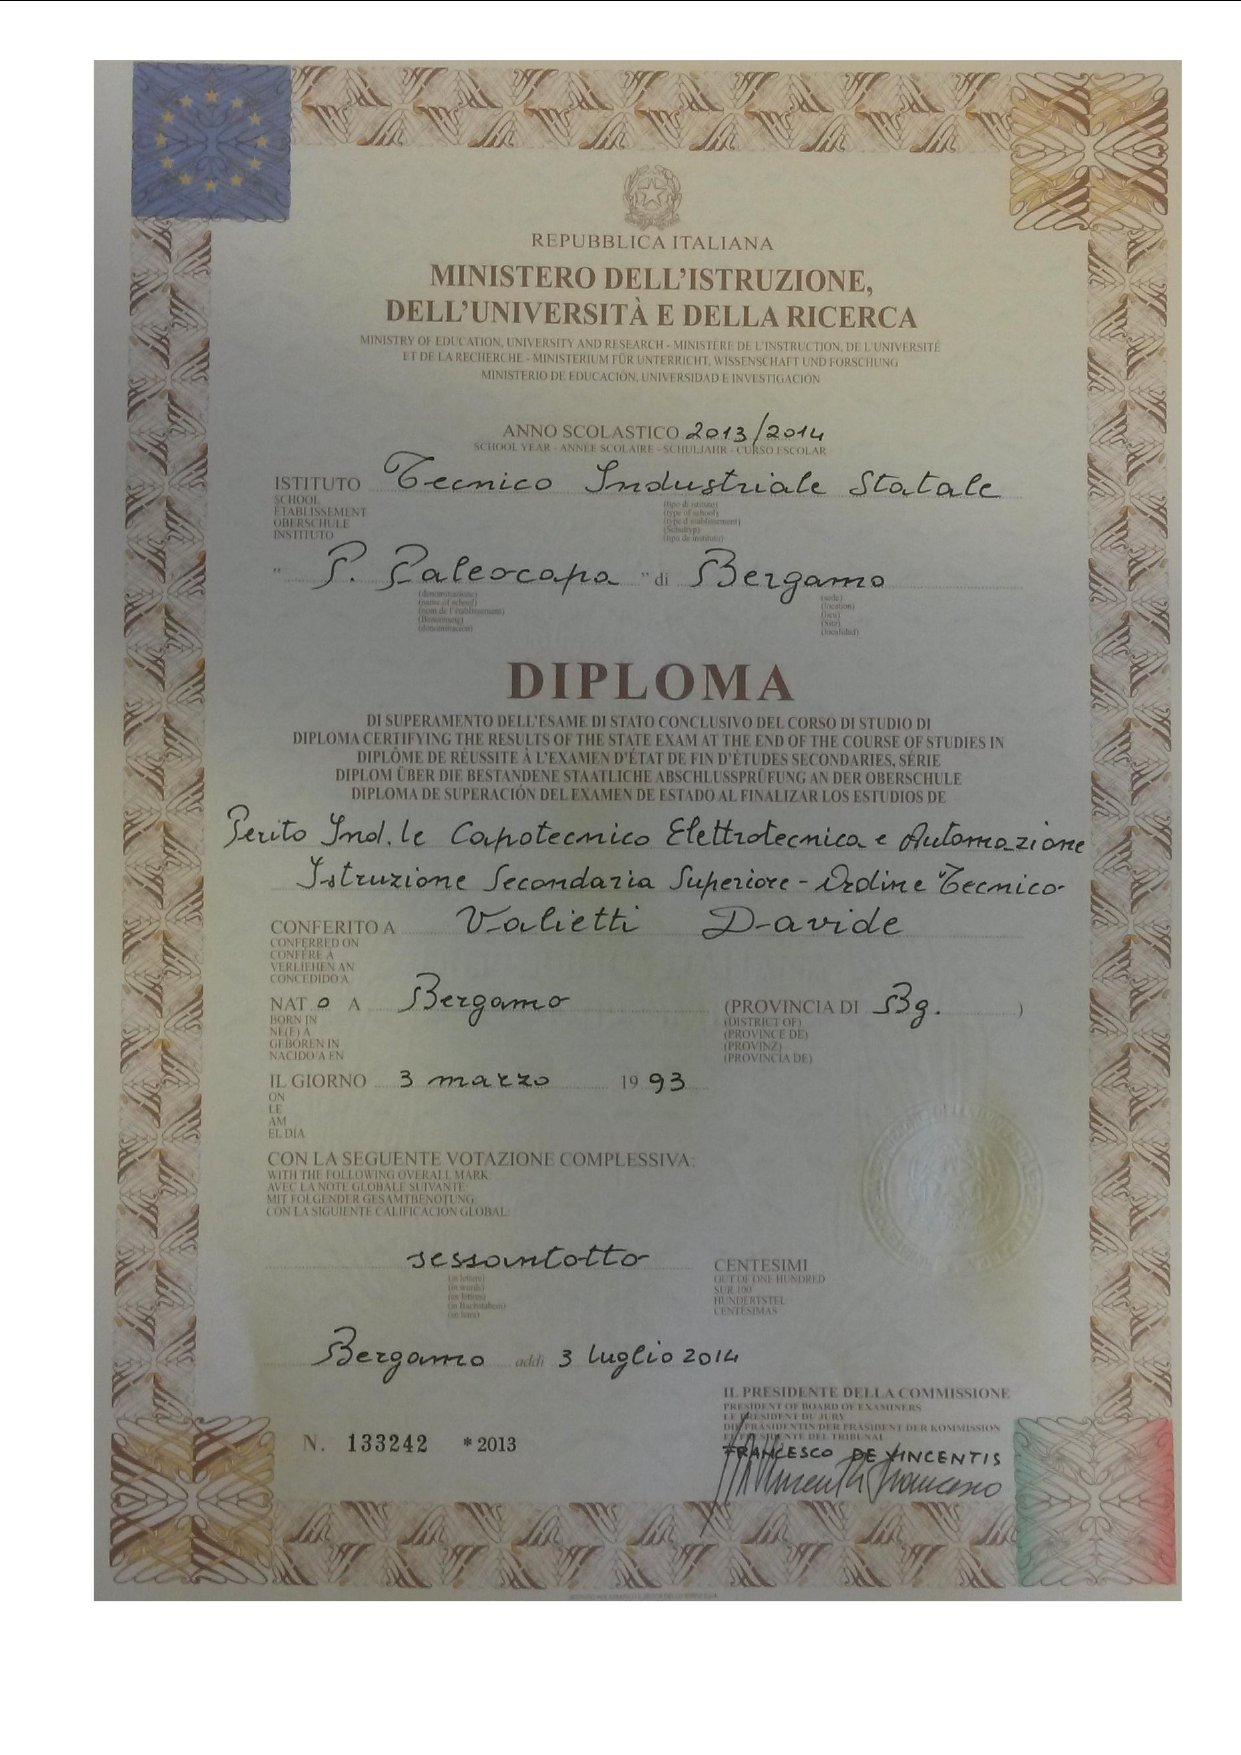 REPUBBLICA ITALIANA
MINISTERO DELL'ISTRUZIONE,
DELL'UNIVERSITÀ E DELLA RICERCA
MINISTRY OF EDUCATION, UNIVERSITY AND RESEARCH - MINISTÈRE DE L'INSTRUCTION, DE L'UNIVERSITÉ
ET DE LA RECHERCHE - MINISTERIUM FÜR UNTERRICHT, WISSENSCHAFT UND FORSCHUNG
MINISTERIO DE EDUCACIÓN, UNIVERSIDAD E INVESTIGACIÓN
ANNO SCOLASTICO 2013/2014
SCHOOL YEAR - ANNÉE SCOLAIRE - SCHULJAHR - CURSO ESCOLAR
ISTITUTO Tecnico Industriale Statale
SCHOOL
ÉTABLISSEMENT
OBERSCHULE
INSTITUTO
(tipo di istituto)
(type of school)
(type d'établissement)
(Schultyp)
(tipo de instituto)
" P. Paleocapa " di Bergamo
(denominazione)
(name of school)
(nom de l'établissement)
(Benennung)
(denominación)
(sede)
(location)
(lieu)
(Sitz)
(localidad)
DIPLOMA
DI SUPERAMENTO DELL'ESAME DI STATO CONCLUSIVO DEL CORSO DI STUDIO DI
DIPLOMA CERTIFYING THE RESULTS OF THE STATE EXAM AT THE END OF THE COURSE OF STUDIES IN
DIPLÔME DE RÉUSSITE À L'EXAMEN D'ÉTAT DE FIN D'ÉTUDES SECONDARIES, SÉRIE
DIPLOM ÜBER DIE BESTANDENE STAATLICHE ABSCHLUSSPRÜFUNG AN DER OBERSCHULE
DIPLOMA DE SUPERACIÓN DEL EXAMEN DE ESTADO AL FINALIZAR LOS ESTUDIOS DE
Perito Ind.le Capotecnico Elettrotecnica e Automazione
Istruzione Secondaria Superiore - Ordine Tecnico-
CONFERITO A Valietti Davide
CONFERRED ON
CONFÉRÉ À
VERLIEHEN AN
CONCEDIDO A
NAT o A Bergamo (PROVINCIA DI Bg. )
BORN IN
NÉ(E) À
GEBOREN IN
NACIDO/A EN
(DISTRICT OF)
(PROVINCE DE)
(PROVINZ)
(PROVINCIA DE)
IL GIORNO 3 marzo 19 93
ON
LE
AM
EL DÍA
CON LA SEGUENTE VOTAZIONE COMPLESSIVA:
WITH THE FOLLOWING OVERALL MARK:
AVEC LA NOTE GLOBALE SUIVANTE:
MIT FOLGENDER GESAMTBENOTUNG:
CON LA SIGUIENTE CALIFICACIÓN GLOBAL:
sessantotto CENTESIMI
(in lettere)
(in words)
(en lettres)
(in Buchstaben)
(en letra)
OUT OF ONE HUNDRED
SUR 100
HUNDERTSTEL
CENTÉSIMAS
Bergamo addì 3 luglio 2014
IL PRESIDENTE DELLA COMMISSIONE
PRESIDENT OF BOARD OF EXAMINERS
LE PRÉSIDENT DU JURY
DIE PRÄSIDENTIN/DER PRÄSIDENT DER KOMMISSION
EL PRESIDENTE DEL TRIBUNAL
FRANCESCO DE VINCENTIS
N. 133242 * 2013